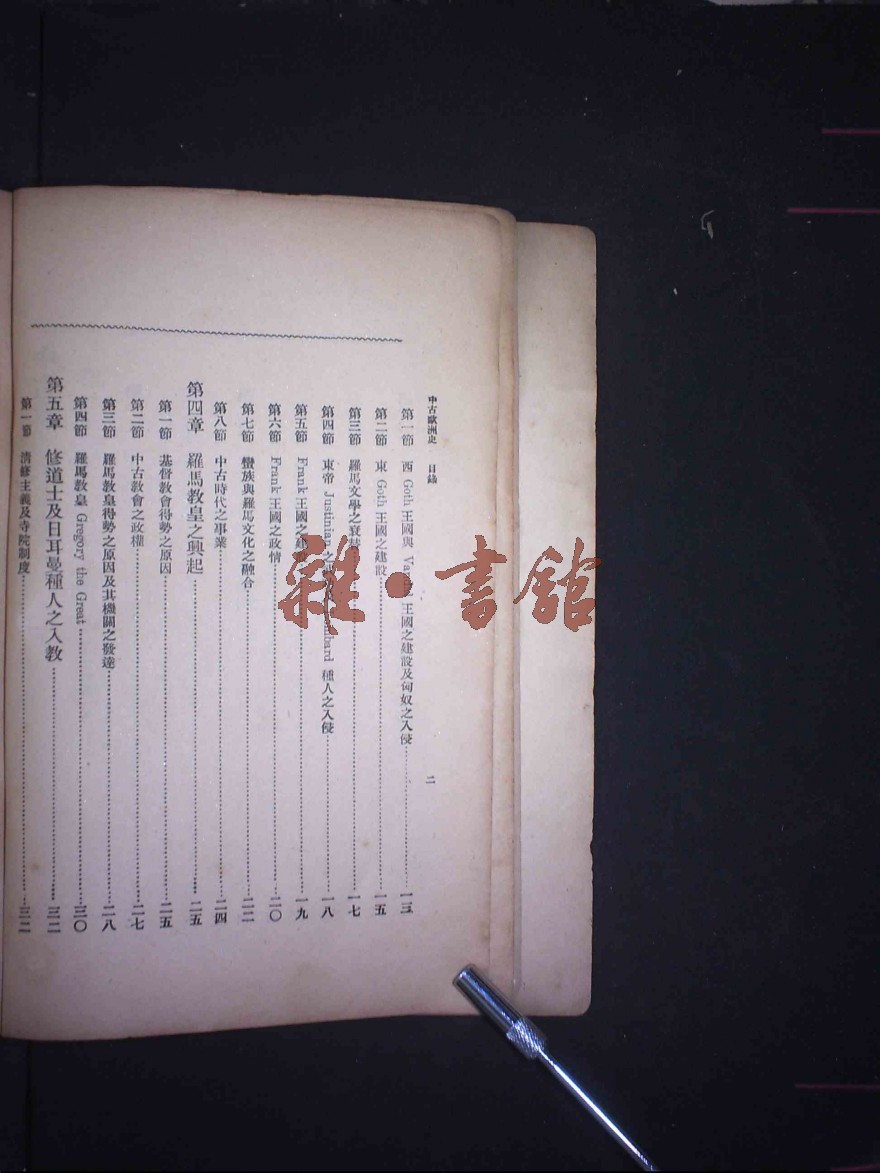 中古歐洲史 目錄 二
第一節 西 Goth 王國與 王國之建設及匈奴之入侵 一三
第二節 東 Goth 王國之建設 一五
第三節 羅馬文學之衰替 一七
第四節 東帝 Justinian 之 種人之入侵 一八
第五節 Frank 王國之建設 一九
第六節 Frank 王國之政情 二〇
第七節 蠻族與羅馬文化之融合 二二
第八節 中古時代之事業 二四
第四章 羅馬教皇之興起 二五
第一節 基督教會得勢之原因 二五
第二節 中古教會之政權 二七
第三節 羅馬教皇得勢之原因及其機關之發達 二八
第四節 羅馬教皇 Gregory the Great 三〇
第五章 修道士及日耳曼種人之入教 三二
第一節 清修主義及寺院制度 三二
雜·書館